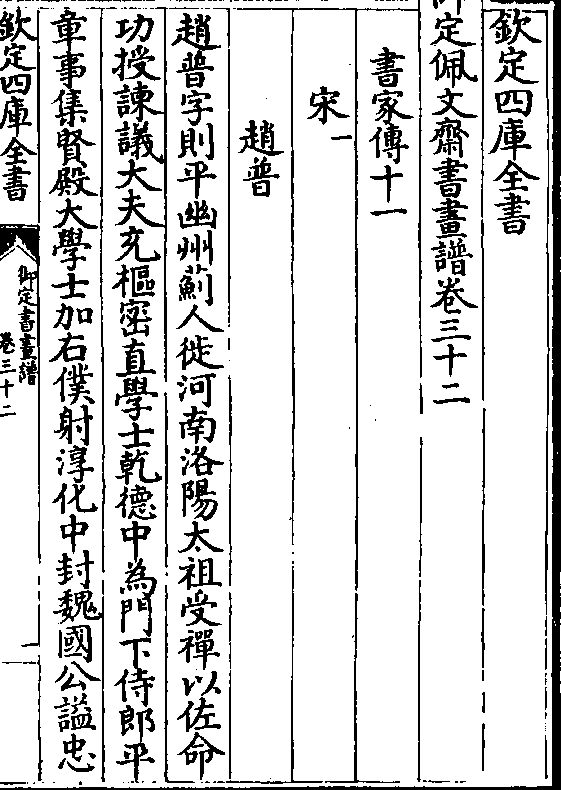 欽定四庫全書
御定佩文齋書畫譜卷三十二
書家傳十一
宋一
趙普
趙普字則平幽州薊人徙河南洛陽太祖受禪以佐命
功授諫議大夫充樞密直學士乾德中為門下侍郎平
章事集賢殿大學士加右僕射淳化中封魏國公謚忠
欽定四庫全書
御定書畫譜
卷三十二
一